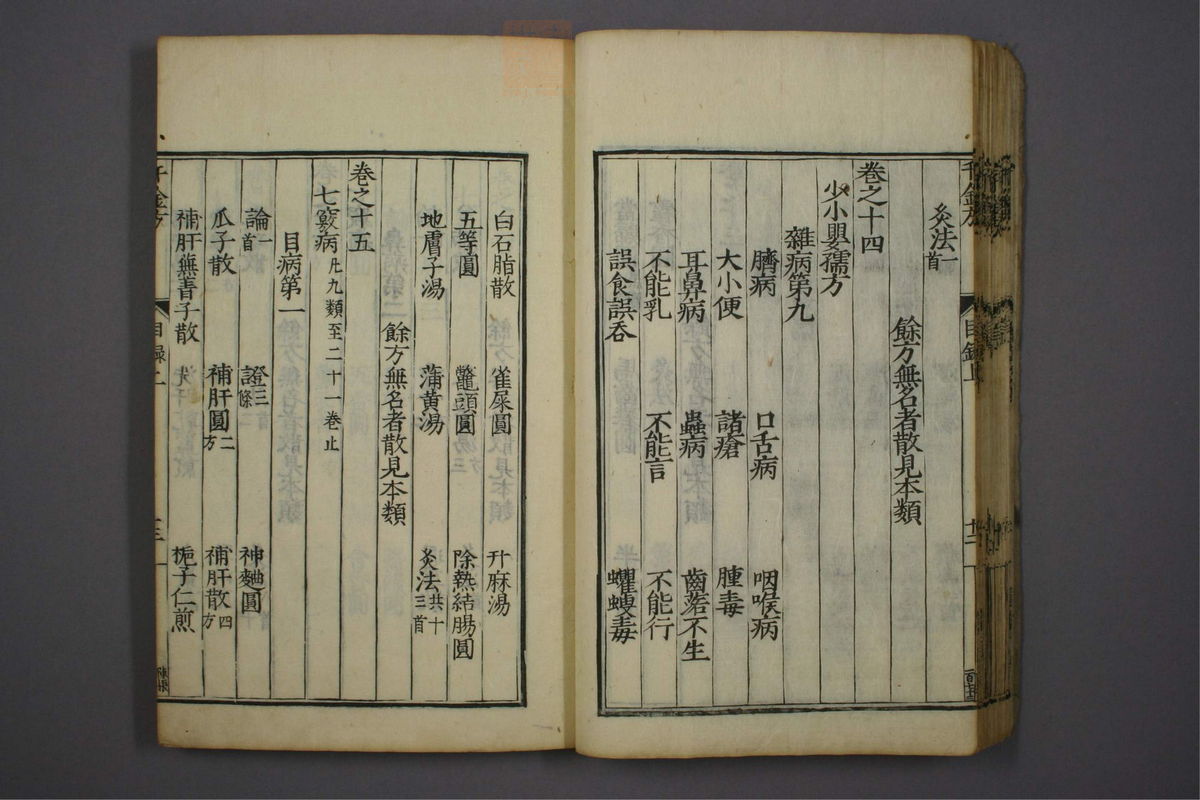 千金方 目録上 十二
灸法一首
餘方無名者散見本類
卷之十四
少小嬰孺方
雜病第九
臍病 口舌病 咽喉病
大小便 諸瘡 腫毒
耳鼻病 蟲病 齒落不生
不能乳 不能言 不能行
誤食誤吞 蠼螋毒
白石脂散 雀屎圓 升麻湯
五等圓 鼈頭圓 除熱結腸圓
地膚子湯 蒲黃湯 灸法共十三首
餘方無名者散見本類
卷之十五
七竅病凡九類至二十一卷止
目病第一
論一首 證三條 神麯圓
瓜子散 補肝圓二方 補肝散四方
補肝蕪菁子散 梔子仁煎
千金方 目録